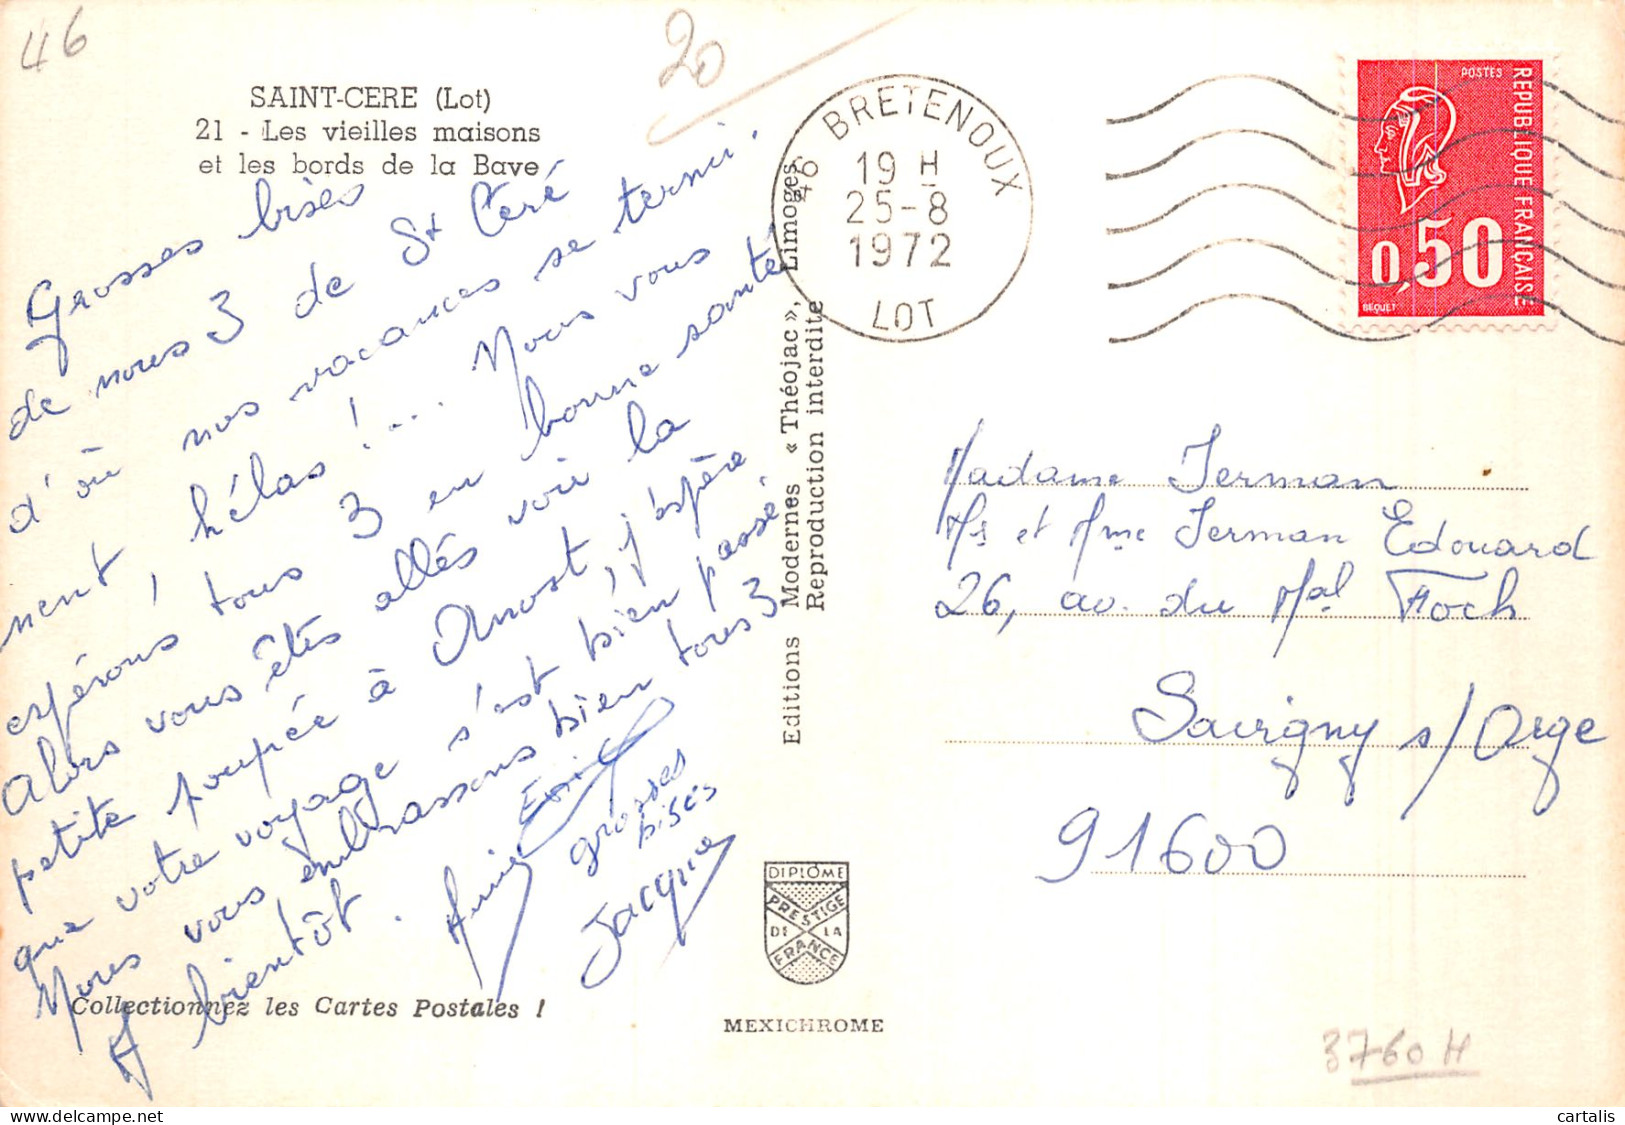 46
20
SAINT-CERE (Lot)
21 - Les vieilles maisons
et les bords de la Bave
Grosses bises
de nous 3 de St Céré
d'où nos vacances se termi-
nent, hélas !... Nous vous
espérons tous 3 en bonne santé
Alors vous êtes allés voir la
petite poupée à Anost, j'espère
que votre voyage s'est bien passé.
Nous vous embrassons bien tous 3
A bientôt.
grosses
bises
Jacques
Collectionnez les Cartes Postales !
Editions Modernes « Théojac », Limoges
Reproduction interdite
DIPLOME
PRESTIGE
DE LA
FRANCE
MEXICHROME
46 BRETENOUX
19 H
25-8
1972
LOT
POSTES
REPUBLIQUE FRANÇAISE
0,50
BEQUET
Madame Jerman
Mr et Mme Jerman Edouard
26, av. du Mal Foch
Savigny s/Orge
91600
3760H
cartalis